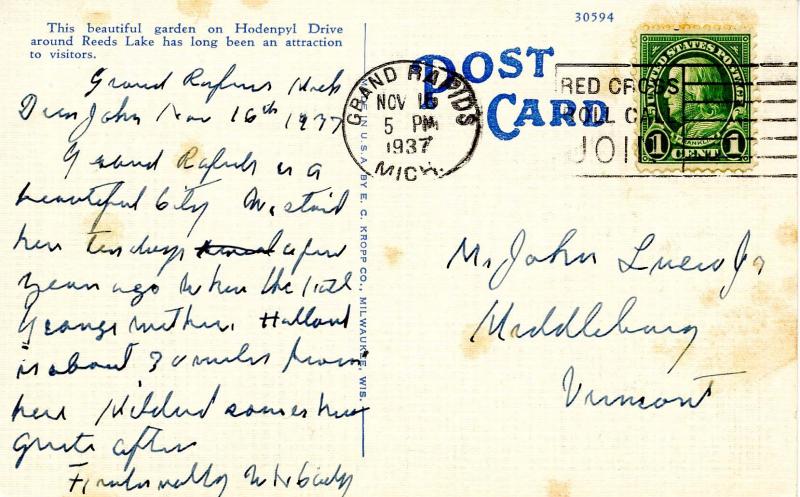 This beautiful garden on Hodenpyl Drive
around Reeds Lake has long been an attraction
to visitors.
Grand Rapids Mich
Dear John Nov 16th 1937
Grand Rapids is a
beautiful City We staid
here ten days a few
years ago when the
Grange met here. Holland
is about 30 miles from
here Mildred comes here
quite often
Fraternally
MADE IN U.S.A. BY E. C. KROPP CO., MILWAUKEE, WIS.
30594
POST
CARD
GRAND RAPIDS
NOV 16
5 PM
1937
MICH.
RED CROSS
ROLL CALL
JOIN
UNITED STATES POSTAGE
FRANKLIN
1 CENT 1
Mr John Lucia Jr
Middlebury
Vermont